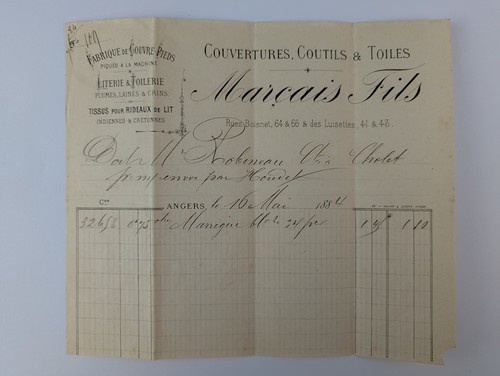 FABRIQUE DE COUVRE-PIEDS
PIQUÉS A LA MACHINE
LITERIE & TOILERIE
PLUMES, LAINES & CRINS
TISSUS POUR RIDEAUX DE LIT
INDIENNES & CRETONNES
COUVERTURES, COUTILS & TOILES
Marçais Fils
Rues Boisnet, 64 & 66 & des Luisettes, 41 & 43
Doit Mr Robineau à Cholet
par
ANGERS, le 16 Mai 1884
32652 0m75